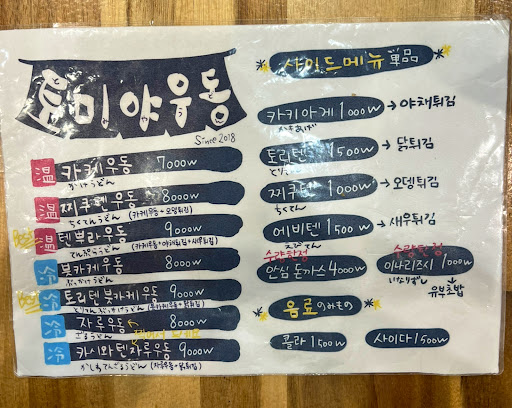 토미야우동
Since 2018
温 카케우동 7000w
かけうどん
温 찌쿠텐 우동 8000w
ちくてんうどん (카케우동+오뎅튀김)
温 텐뿌라우동 9000w
てんぷらうどん (카케우동+야채튀김+새우튀김)
冷 붓카케우동 8000w
ぶっかけうどん
冷 토리텐 붓카케우동 9000w
とりてんぶっかけうどん (붓카케우동+닭튀김)
冷 자루우동 8000w
ざるうどん
冷 카시와텐자루우동 9000w
かしわてんざるうどん (자루우동+닭튀김)
사이드메뉴 単品
카키아게 1000w → 야채튀김
かきあげ
토리텐 1500w → 닭튀김
とりてん
찌쿠텐 1000w → 오뎅튀김
ちくてん
에비텐 1500w → 새우튀김
えびてん
수량한정
안심 돈까스 4000w
수량한정
이나리즈시 1000w
いなりずし
유부초밥
음료 のみもの
콜라 1500w
사이다 1500w